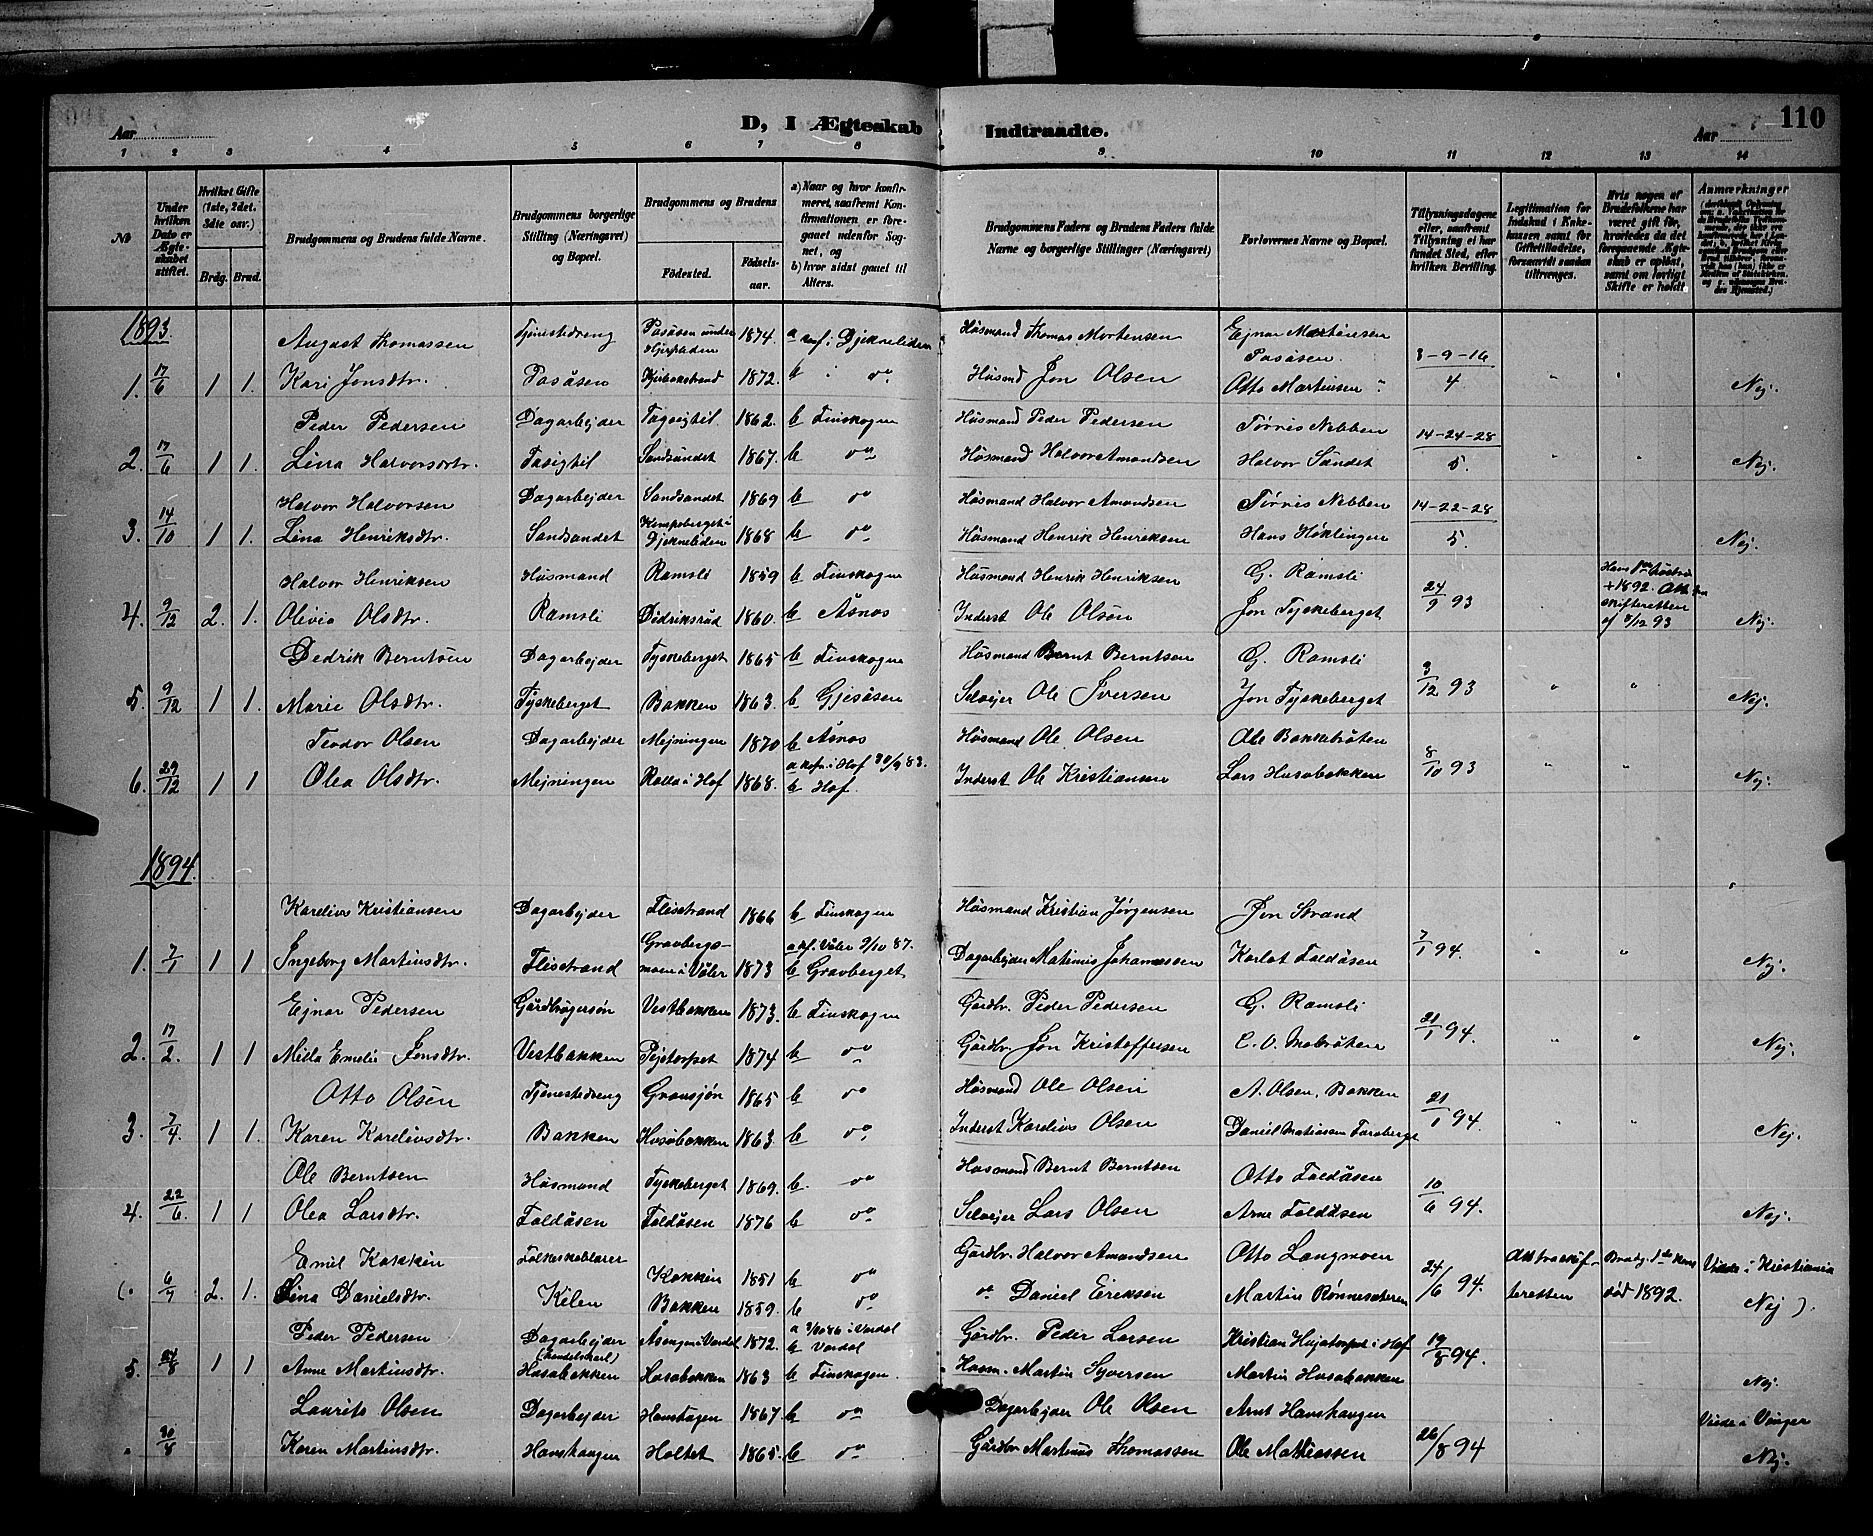 110
Aar
D, I Ægteskab Indtraadte.
Aar
1 2 3 4 5 6 7 8 9 10 11 12 13 14
No
Under hvilken Dato er Ægteskabet stiftet.
Hvilket Gifte (1ste, 2det, 3die osv.)
Brdg. Brud.
Brudgommens og Brudens fulde Navne.
Brudgommens borgerlige Stilling (Næringsvei) og Bopæl.
Brudgommens og Brudens
Födested.
Födsels-aar.
a) Naar og hvor konfirmeret, saafremt Konfirmationen er foregaaet udenfor Sognet, og
b) hvor sidst gaaet til Alters.
Brudgommens Faders og Brudens Faders fulde Navne og borgerlige Stillinger (Næringsvei)
Forlovernes Navne og Bopæl.
Tillysningsdagene eller, saafremt Tillysning ei har fundet Sted, efter hvilken Bevilling.
Legitimation for Indskud i Enkekassen samt for Giftetilladelse, forsaavidt saadan tiltrænges.
Hvis nogen af Brudefolkene har været gift før, hvorledes da det foregaaende Ægteskab er opløst, samt om lovligt Skifte er holdt
Anmærkninger
1893.
August Thomassen Tjenestedreng Pasåsen under 1874. a conf. i Djekneliden Husmand Thomas Mortensen Ejnar Martinesen
Pasåsen. 3-9-16
1. 17/6 1 1. Kari Jonsdtr. Pasåsen 1872. b i do Husmd Jon Olsen Otto Martinsen " 4 " " Nej.
Peder Pedersen Dagarbejder 1862. b Finskogen Husmand Peder Pedersen Tørris Nebben 14-24-28
2. 17/6 1 1. Lina Halvorsdtr. Sandsundet 1867. b do Husmand Halvor Amundsen Halvor Sundet 5. " " Nej.
Halvor Halvorsen Dagarbejder Sandsundet 1869 b do Husmand Halvor Amundsen Tørris Nebben 14-22-28
3. 14/10 1 1. Lina Henriksdtr. Sandsundet Kempeberget i Djekneliden 1868 b do Husmand Henrik Henriksen Hans Høklingen 5. Nej.
Halvor Henriksen Husmand Ramsli 1859 b Finskogen Husmand Henrik Henriksen G. Ramsli Hans 1ste
4. 9/12 2. 1. Olivia Olsdtr. Ramsli Didriksrud 1860. b Åsnes Inderst Ole Olsen Jon Tyskeberget 24/9 93 +1892. Att. fra skifteretten af /12 93 Nej.
Dedrik Berntsen Dagarbejder Tyskeberget 1865 b Finskogen Husmand Bernt Berntsen G. Ramsli
5. 9/12 1 1. Marie Olsdtr. Tyskeberget Bakken 1863. b Gjesåsen Selvejer Ole Iversen Jon Tyskeberget 3/12 93 " " Nej.
Teodor Olsen Dagarbejder Mejningen 1870 b Åsnes Husmand Ole Olsen Ole Bakkebråten
6. 29/12 1 1 Olea Olsdtr. Mejningen Rotta i Hof 1868. a kofn. i Hof 30/9 83. b Hof. Inderst Ole Kristiansen Lars Husebakken 8/10 93 " " Nej.
1894.
Karelius Kristiansen Dagarbejder Flisstrand 1866 b Finskogen Husmand Kristian Jørgensen Jon Strand
1. 7/1 1 1 Ingeborg Martinsdtr. Flisstrand Gravbergsmoen i Våler 1873 a kf. Våler 9/10 87. b Gravberget Dagarbejder Matinus Johannessen Karlot Faldåsen 7/1 94. " " Nej.
Ejnar Pedersen Gårdbrugersøn Vestbakken 1873. b Finskogen Gårdbr. Peder Pedersen G. Ramsli
2. 17/2. 1 1 Milla Emelie Jonsdtr. Vestbakken Pejstorpet 1874 b do Gårdbr. Jon Kristoffersen C. O. Mobråten 21/1 94. " " Nej.
Otto Olsen Tjenestedreng Gransjøn 1865 b do Husmand Ole Olsen A. Olsen, Bakken
3. 7/4. 1 1. Karen Kareliusdtr. Bakken Husebakken 1863. b do Inderst Karelius Olsen Daniel Matiassen 21/1 94. " " Nej.
Ole Berntsen Husmand Tyskeberget 1869. b. do Husmand Bernt Berntsen Otto Faldåsen
4. 22/6. 1 1 Olea Larsdtr. Faldåsen Faldåsen 1876 b do Selvejer Lars Olsen Arne Faldåsen 10/6 94. Nej.
Emil Kokkin Folkeskolelærer Kokkin 1851 b do Gårdbr. Halvor Amundsen Otto Langmoen Att fra skif- Brudg. 1ste Viede i Kristiania
6/7 2. 1. Lina Danielsdtr. Kilen Bakken 1859. b do do Daniel Eriksen Martin Rønnesæteren 24/6 94. teretten død 1892. Nej ).
Peder Pedersen Dagarbejder (handelskarl) Åsengen i Verdal 1872. a i Verdal b Verdal Gårdbr. Peder Larsen Kristian i Hof 19/8 94.
5. 24/8 1 1 Anne Martinusdtr. Husebakken Husebakken 1863 b Finskogen. Husm. Martin Syversen Martin Husebakken Nej.
Laurits Olsen Dagarbejder Hanshagen 1867. b do Dagarbejder Ole Olsen Arnt Hanshaugen Viede i Vinger
30/8 Karen Martinsdtr. Hanshaugen Holtet 1865. b do Gårdbr Martinus Thomassen Ole Matteassen 26/8 94 Nej.